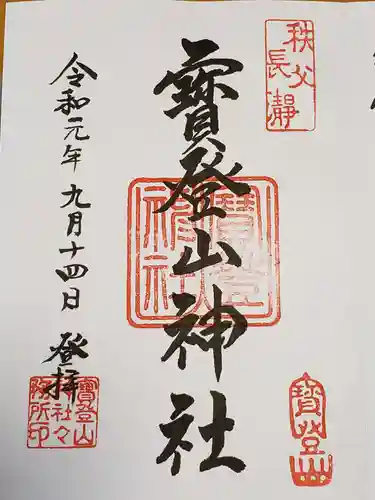 秩父
長瀞
寳登山神社
令和元年九月十四日
登拝
寳登山
神社
寳登山
神社々
務所印
寳登山